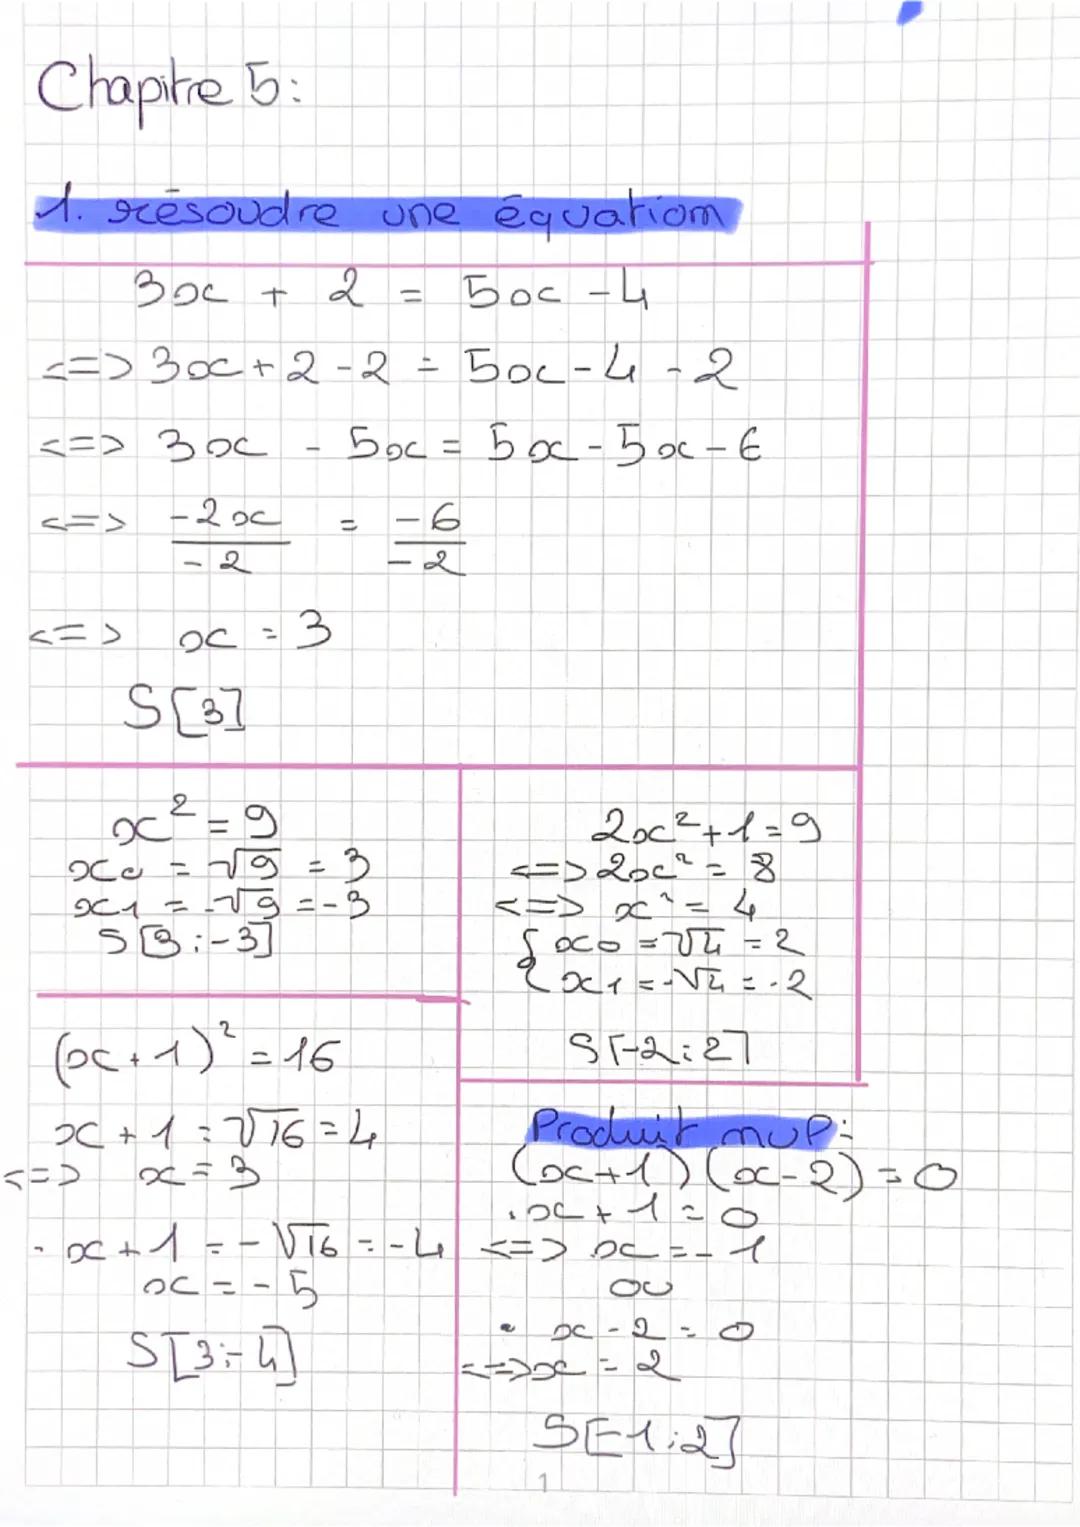 Chapitre 5:
1. résoudre une équation
3x + 2 = 5x - 4
<=> 3x + 2 - 2 = 5x - 4 - 2
<=> 3x - 5x = 5x - 5x - 6
<=> -2x/-2 = -6/-2
<=> x = 3
S[3]
x² = 9
x0 = √9 = 3
x1 = -√9 = -3
S[3;-3]
2x² + 1 = 9
<=> 2x² = 8
<=> x² = 4
{ x0 = √4 = 2
x1 = -√4 = -2
S[-2;2]
(x+1)² = 16
x + 1 = √16 = 4
<=> x = 3
· x + 1 = -√16 = -4
x = -5
S[3;-4]
Produit nul:
(x+1)(x-2) = 0
· x + 1 = 0
<=> x = -1
ou
• x - 2 = 0
<=> x = 2
S[-1;2]
1